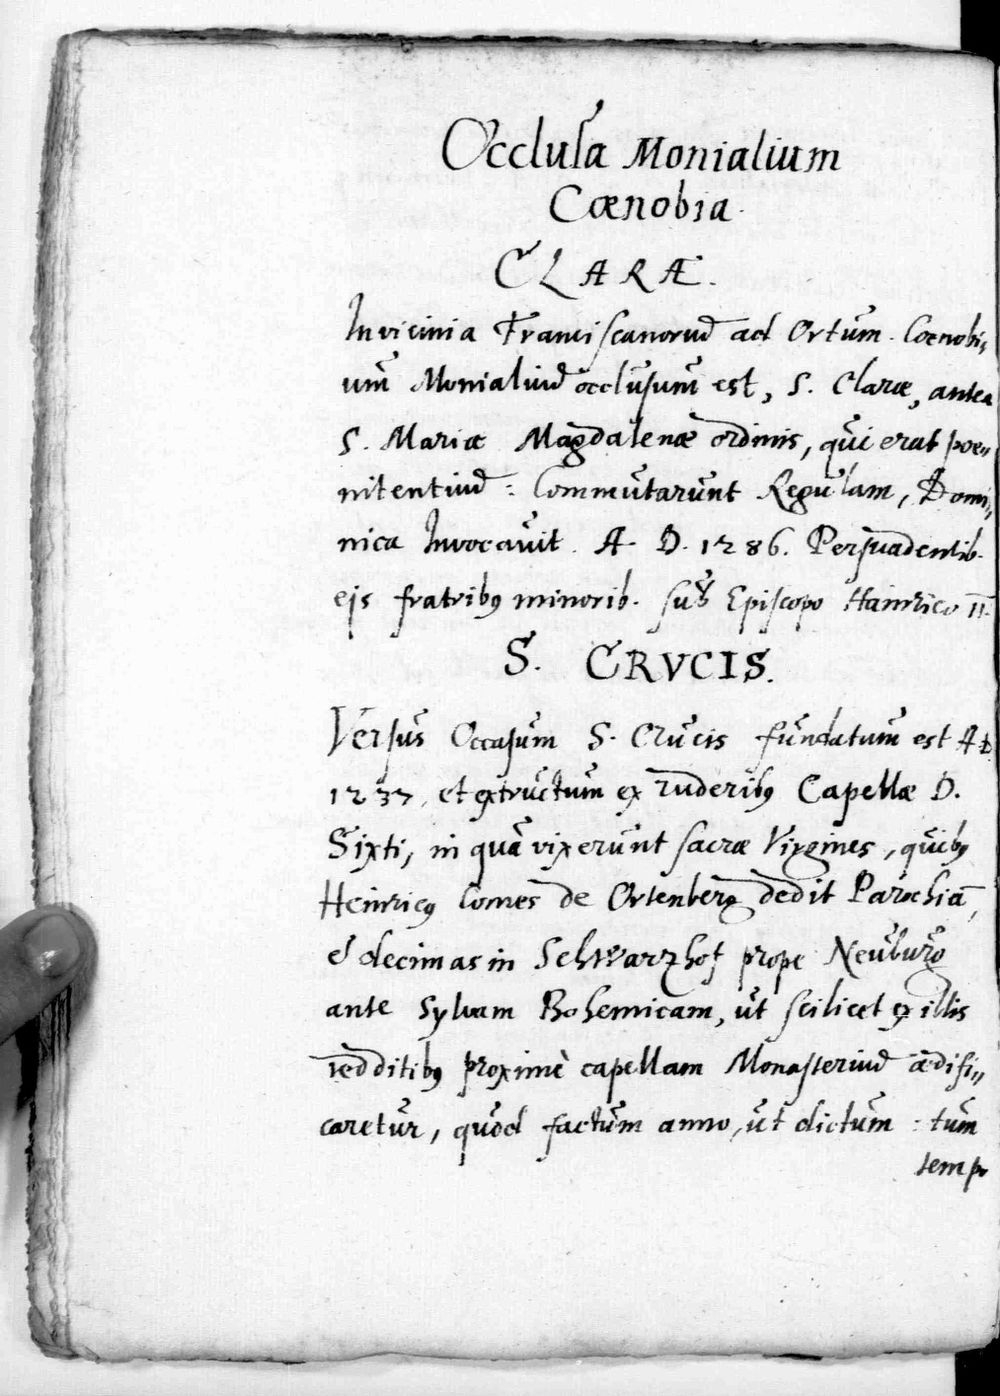 Occlusa Monialium
Cœnobia.
CLARÆ.
In vicinia Franciscanorũ ad Ortum. Cœnobi,
um Monialiũ occlusum est, S. Claræ, antea
S. Mariæ Magdalenæ ordinis, qui erat pœ„
nitentiũ: Commutarunt Regulam, Domi„
nica Invocavit. A. D. 1286. Persuadentib.
eis fratribꝰ minorib. sub Episcopo Hainrico II.
S. CRVCIS.
Versus Occasum S. Crucis fundatum est A D.
1237, et extructum ex ruderibꝰ Capellæ D.
Sixti, in qua vixerunt sacræ Virgines, quibꝰ
Heinricꝰ Comes de Ortenberg dedit Parochiã,
& decimas in Schwarzhof prope Neuburg
ante Sylvam Bohemicam, ut scilicet ex illis
redditibꝰ proximè capellam Monasteriũ ædifi„
caretur, quod factum anno, ut dictum: tum
temp